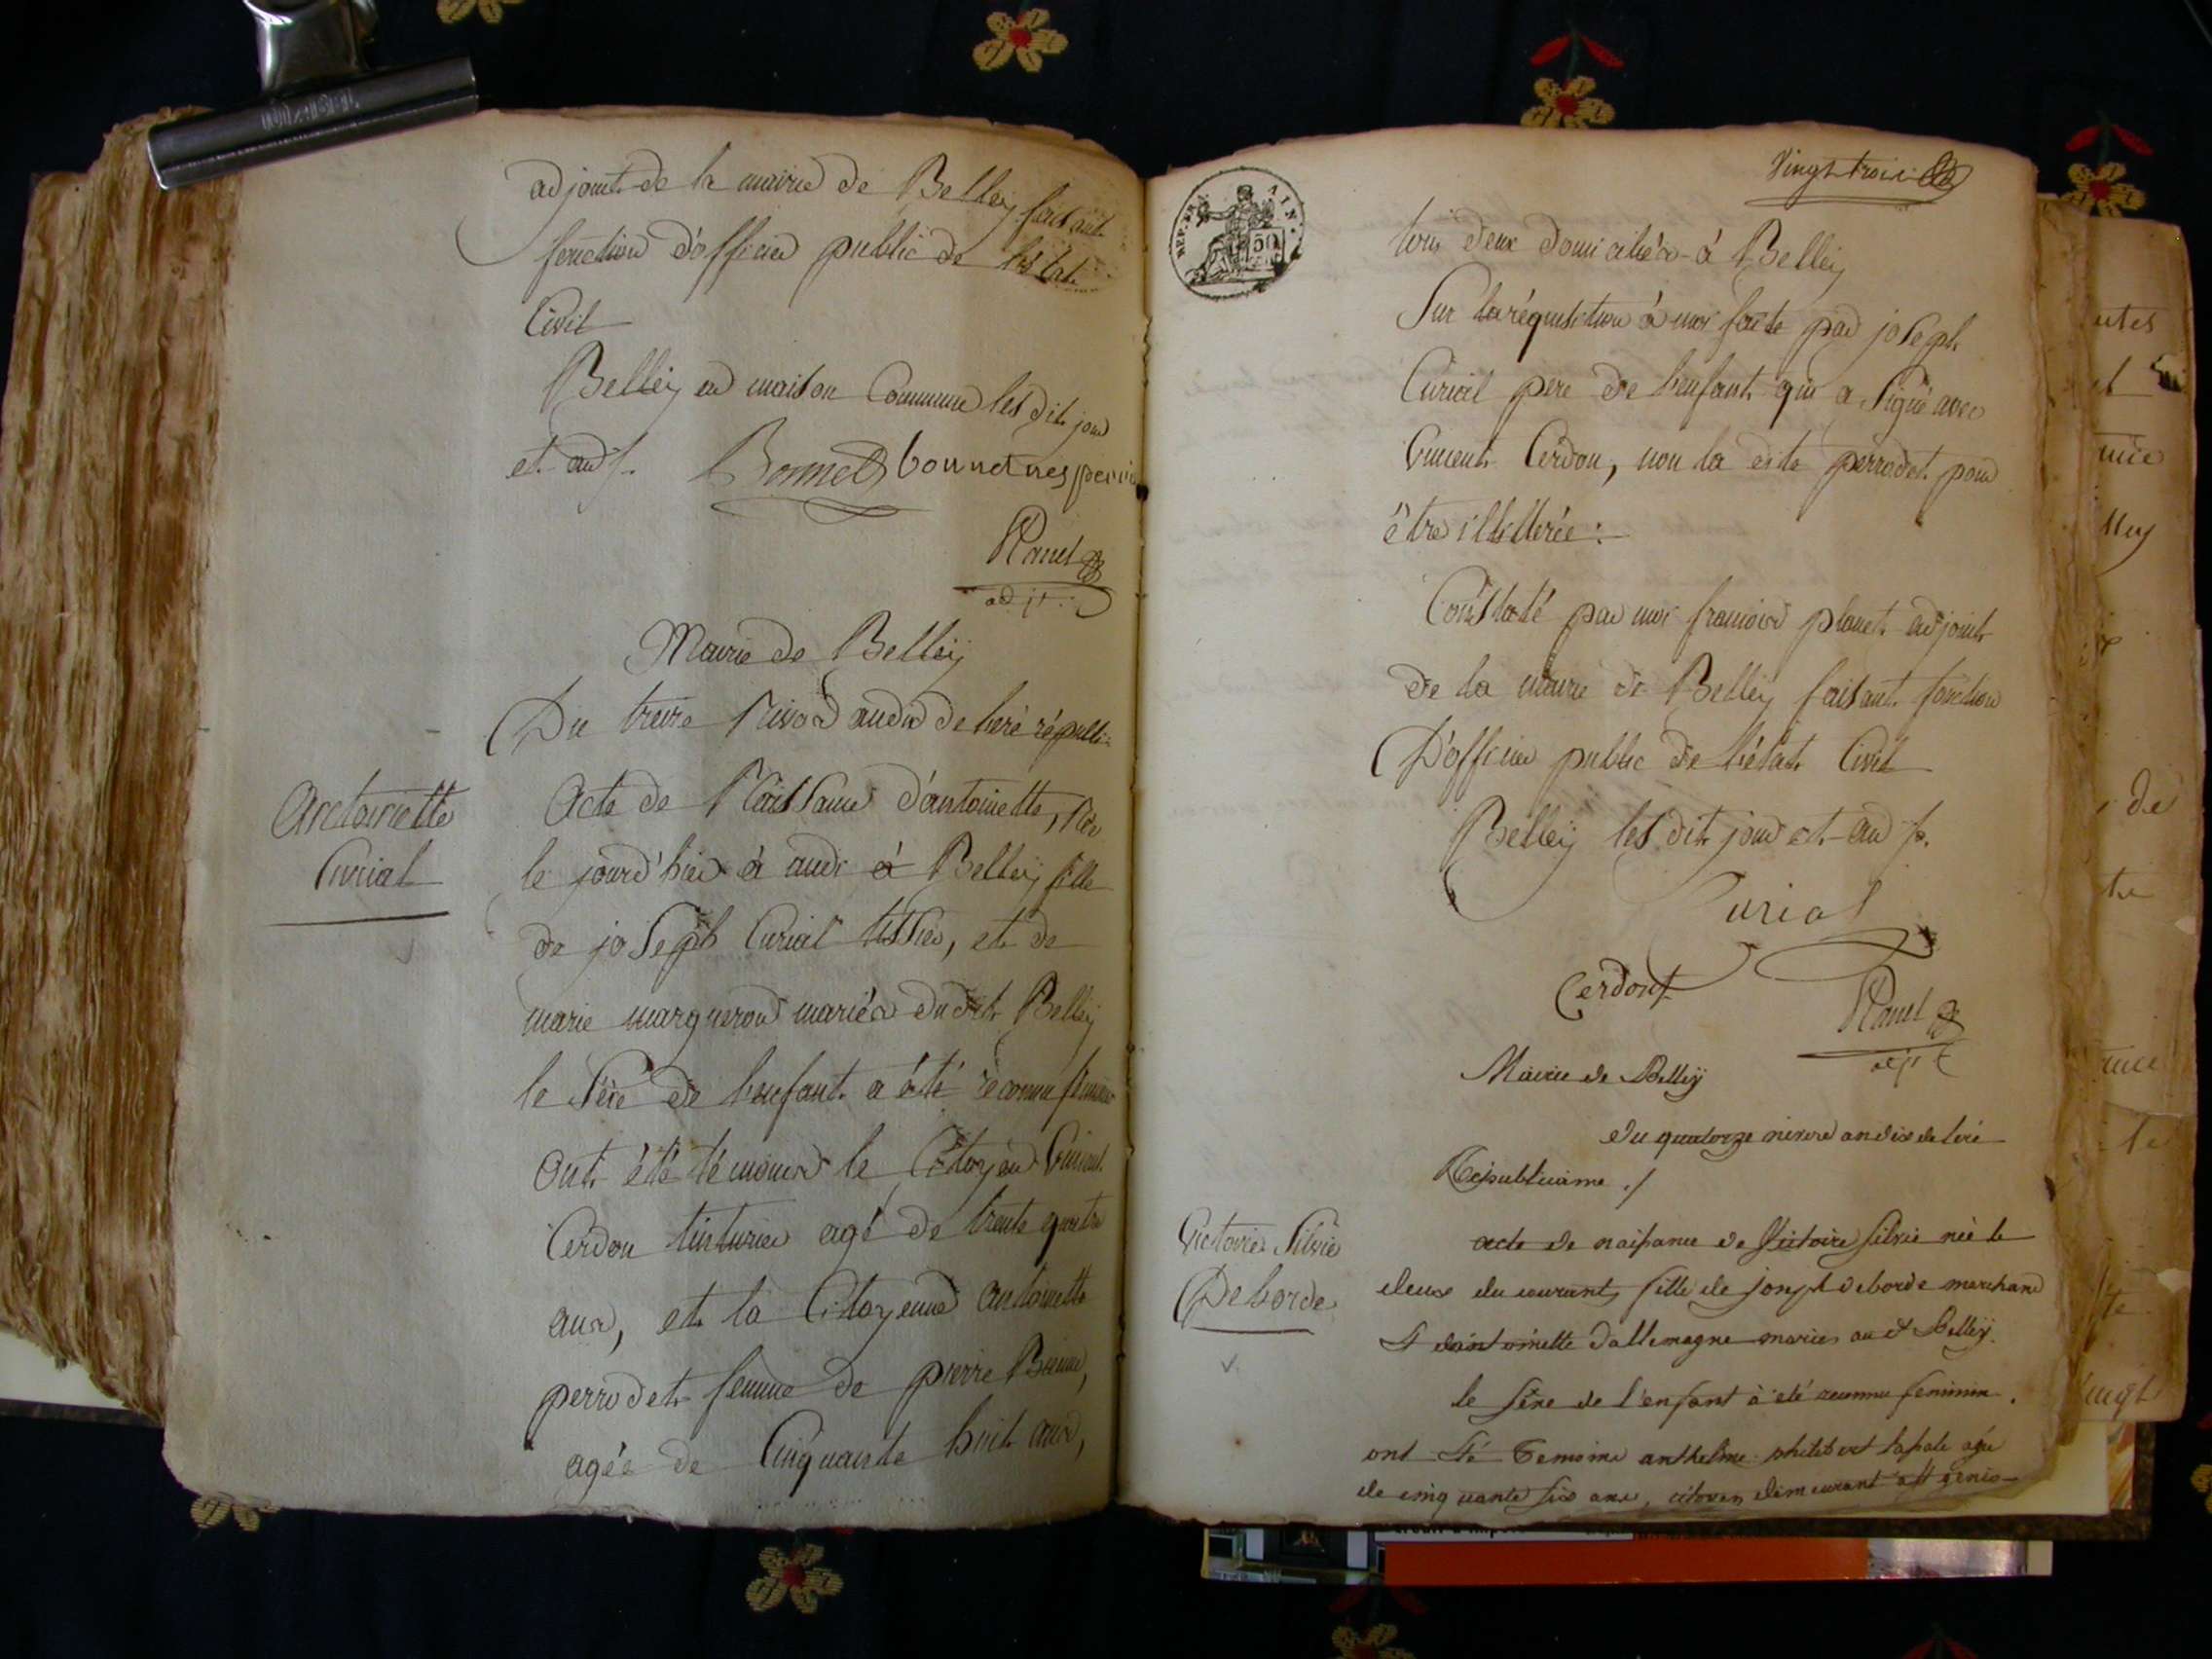 adjoint de la mairie de Belleÿ faisant
fonction d'officier public de l'état
Civil
Belleÿ en maison Commune les dit jour
et an
Bonnet bonnet
Planet
adjt
Mairie de Belleÿ
Du treize Nivos andix de l'ere républi
Antoinette
Curial
Acte de Naissance d'antoinette, Née
le jourd'hier à midi à Belleÿ fille
de joseph Curial tissier, et de
marie margueron mariés dudit Belleÿ
le Séxe de l'enfant a été reconnu feminin
Ont été témoins le Citoyen Vincent
Cerdon tinturier agé de trente quatre
ans, et la Citoyenne antoinette
perrodet femme de pierre
agée de Cinquante huit ans,
REP. FRA. AIN.
50
Vingt trois
tous deux domiciliés à Belleÿ
Sur la réquisition à moi faite par joseph
Curial pere de l'enfant qui a Signé avec
Vincent Cerdon, non la dite perrodet pour
être illitterée :
Constaté par moi françois planet adjoint
de la mairie de Belleÿ faisant fonction
D'officier public de l'état Civil
Belleÿ les dit jour et an
Curial
Cerdont
Planet
adjt
Mairie de Belleÿ
du quatorze nivose an dix de l'ere
Republicaine ./
Victoire Silvie
Deborde
acte de naissance de Victoire silvie née le
deux du courant, fille de joseph deborde marchand
et d'antoinette dallemagne mariés au dt Belleÿ.
le séxe de l'enfant à eté reconnu feminin.
ont été Temoins anthelme philibert agée
de cinquante six ans, citoyen demeurant a st genis